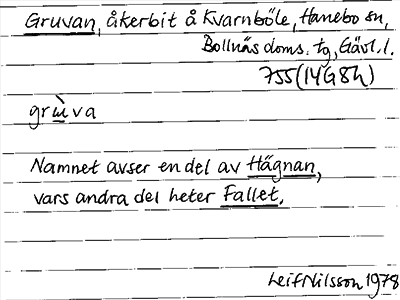 Gruvan, åkerbit å Kvarnböle, Hanebo sn,
Bollnäs doms. tg, Gävl. l.
755 (14G8h)
grùva
Namnet avser en del av Hägnan,
vars andra del heter Fallet.
Leif Nilsson 1978